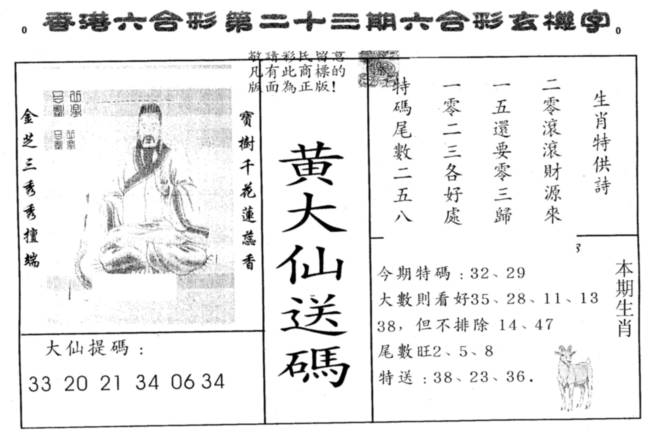 香港六合彩第二十三期六合彩玄機字
敬請彩民留意
凡有此商標的
版面為正版!
寶樹千花蓮蕊香
金芝三秀秀擅端
大仙提碼:
33 20 21 34 06 34
黃大仙送碼
生肖特供詩
二零滾滾財源來
一五還要零三歸
一零二三各好處
特碼尾數二五八
本期生肖
今期特碼:32、29
大數則看好35、28、11、13
38,但不排除 14、47
尾數旺2、5、8
特送:38、23、36.